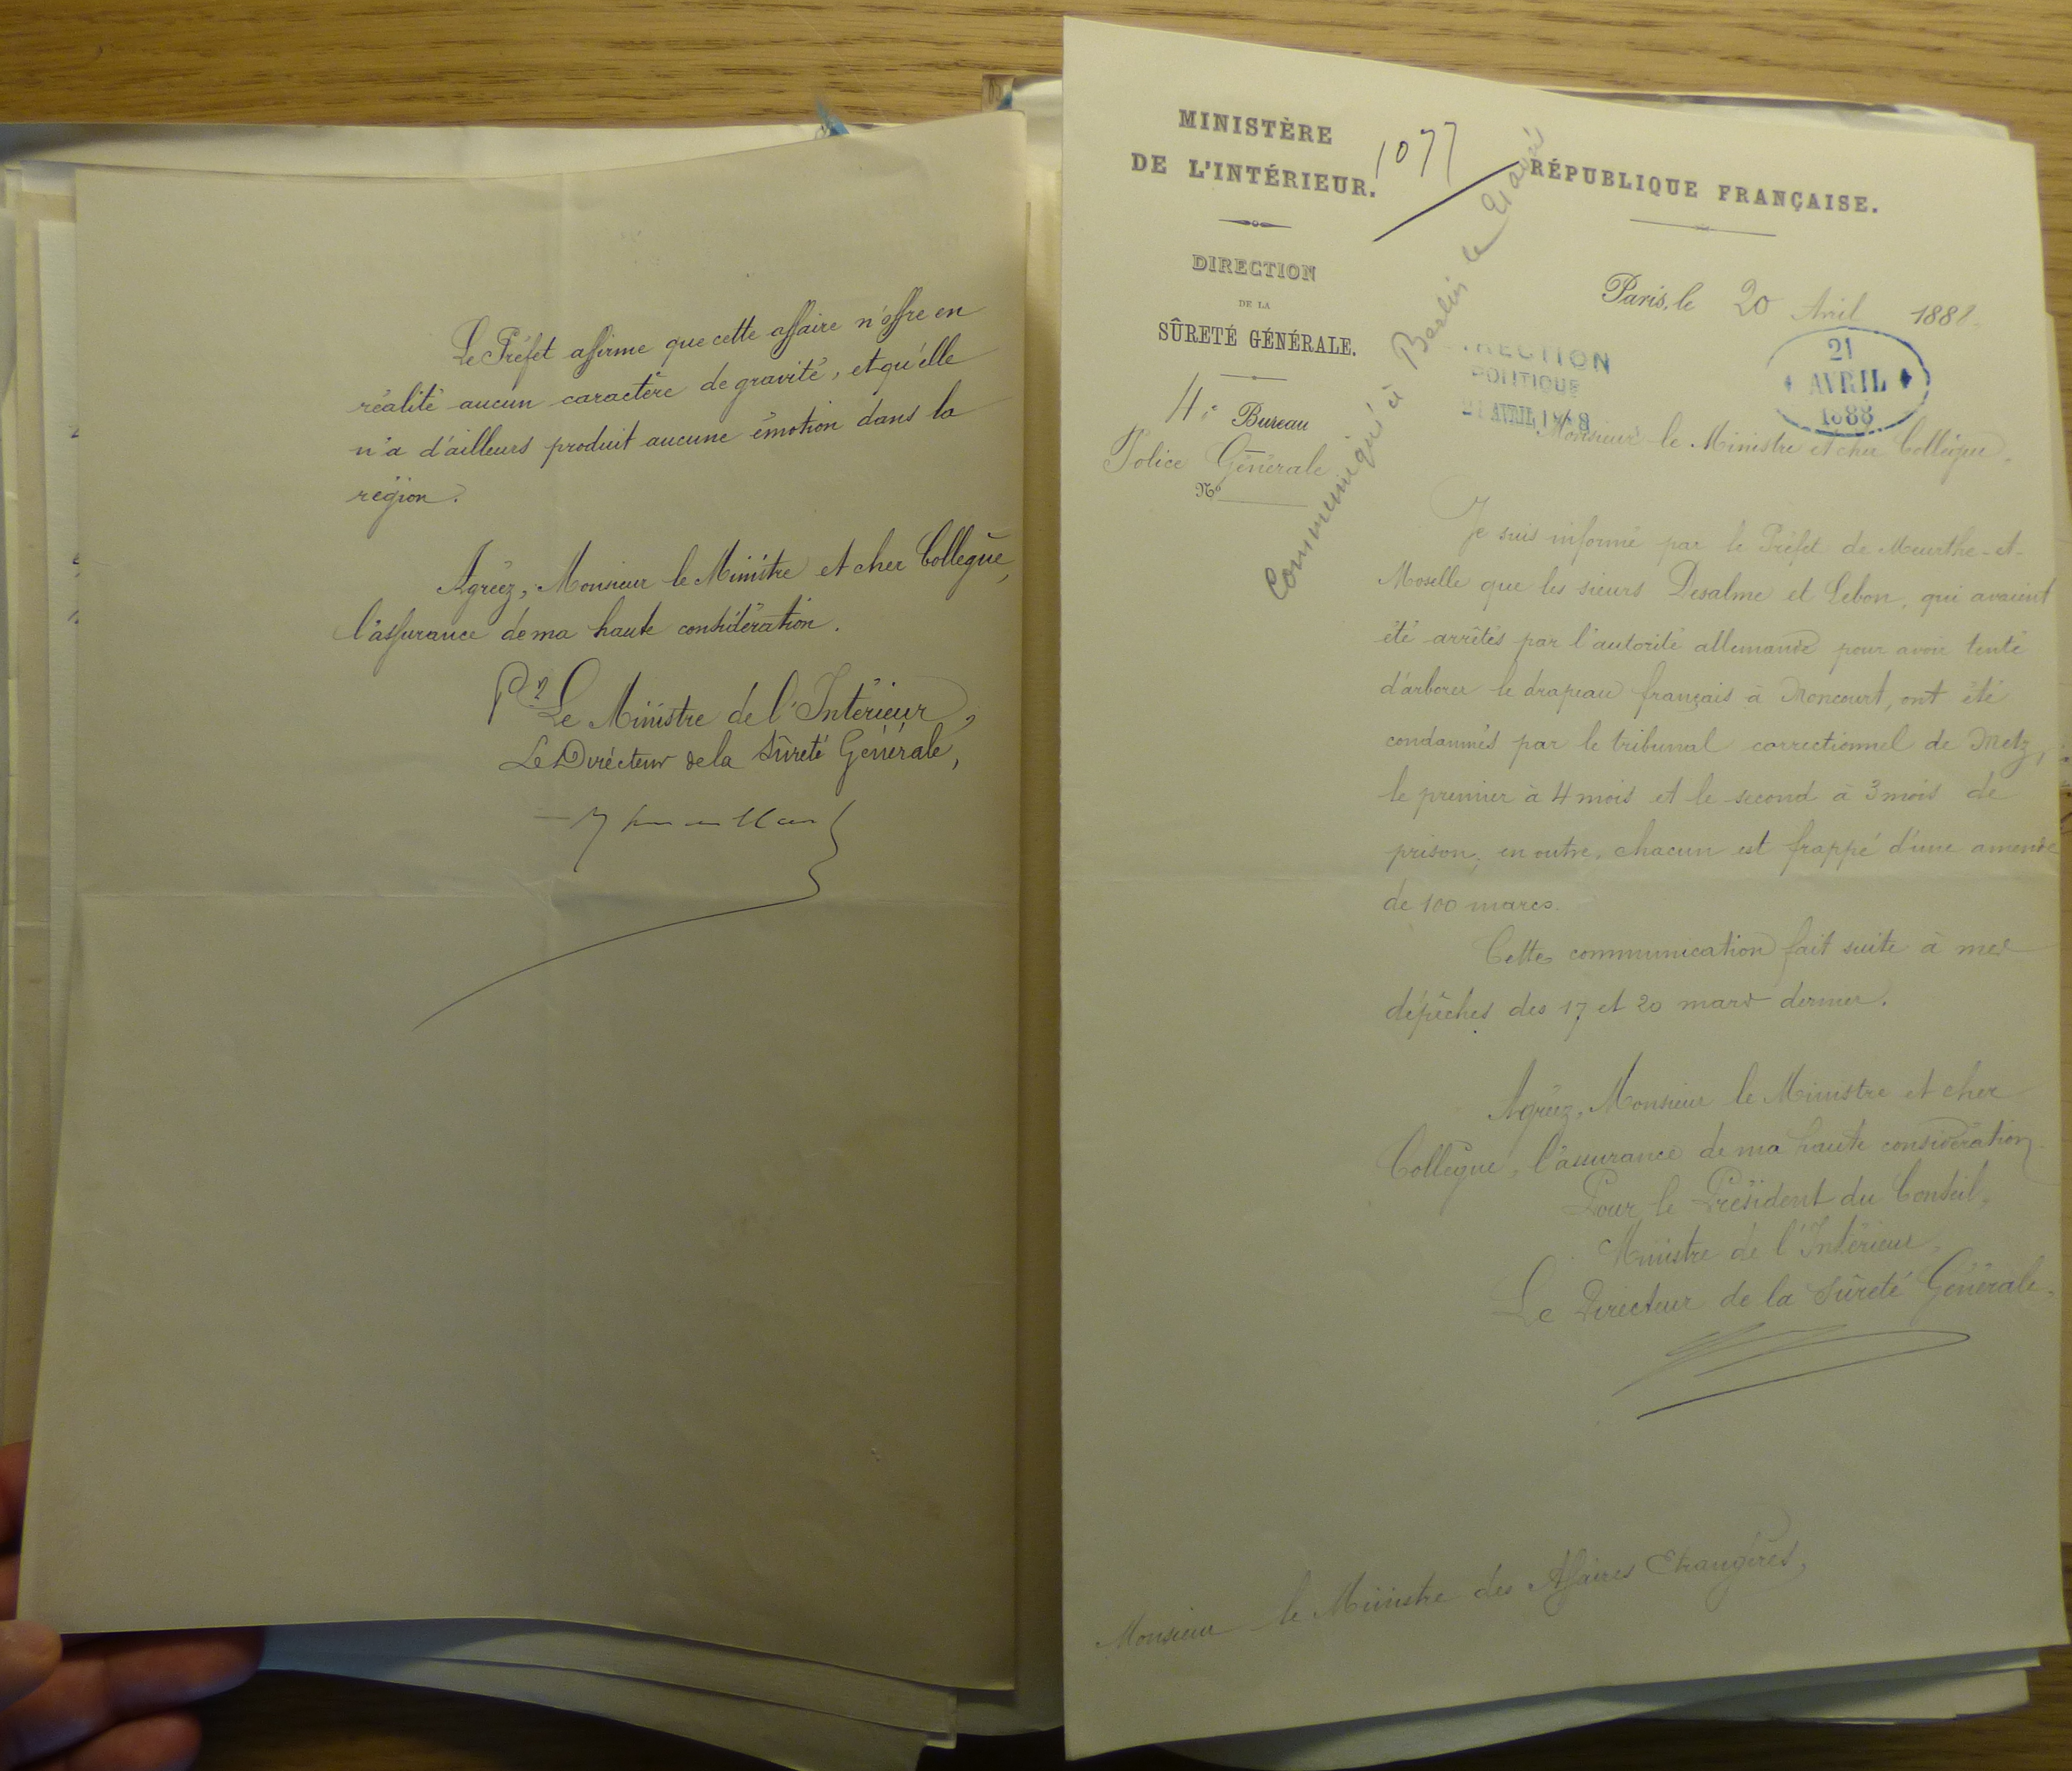 Le Préfet affirme que cette affaire n'offre en
réalité aucun caractère de gravité, et qu'elle
n'a d'ailleurs produit aucune émotion dans la
région.
Agréez, Monsieur le Ministre et cher Collègue,
l'assurance de ma haute considération.
Pr Le Ministre de l'Intérieur,
Le Directeur de la Sûreté Générale,
MINISTÈRE
DE L'INTÉRIEUR.
1077
RÉPUBLIQUE FRANÇAISE.
DIRECTION
DE LA
SÛRETÉ GÉNÉRALE.
4e Bureau
Police Générale
No
Communiqué à Berlin le 21 avril
Paris, le 20 Avril 1888.
DIRECTION
POLITIQUE
21 AVRIL 1888
21
AVRIL
1888
Monsieur le Ministre et cher Collègue,
Je suis informé par le Préfet de Meurthe-et-
Moselle que les sieurs Desalme et Lebon, qui avaient
été arrêtés par l'autorité allemande pour avoir tenté
d'arborer le drapeau français à Moncourt, ont été
condamnés par le tribunal correctionnel de Metz,
le premier à 4 mois et le second à 3 mois de
prison; en outre, chacun est frappé d'une amende
de 100 marcs.
Cette communication fait suite à mes
dépêches des 17 et 20 mars dernier.
Agréez, Monsieur le Ministre et cher
Collègue, l'assurance de ma haute considération.
Pour le Président du Conseil,
Ministre de l'Intérieur,
Le Directeur de la Sûreté Générale,
Monsieur le Ministre des Affaires Etrangères,